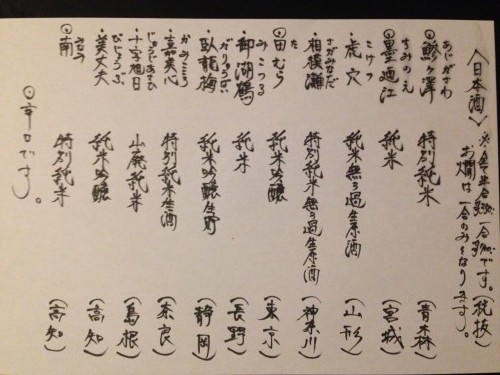 〈日本酒〉 ※全て半合 一合 です。税抜
お燗は一合のみとなります。
あじがさわ
◎鰺ヶ澤 特別純米 (青森)
すみのえ
◎墨廼江 純米 (宮城)
こけつ
・虎穴 純米無ろ過生原酒 (山形)
さがみなだ
・相模灘 特別純米無ろ過生原酒 (神奈川)
た
◎田むら 純米吟醸 (東京)
みこつる
・御湖鶴 純米 (長野)
がりゅうばい
・臥龍梅 純米吟醸生貯 (静岡)
かみこころ
・嘉美心 特別純米生酒 (奈良)
じゅうじあさひ
・十字旭日 山廃純米 (島根)
びじょうぶ
・美丈夫 純米吟醸 (高知)
みなみ
◎南 特別純米 (高知)
◎辛口です。